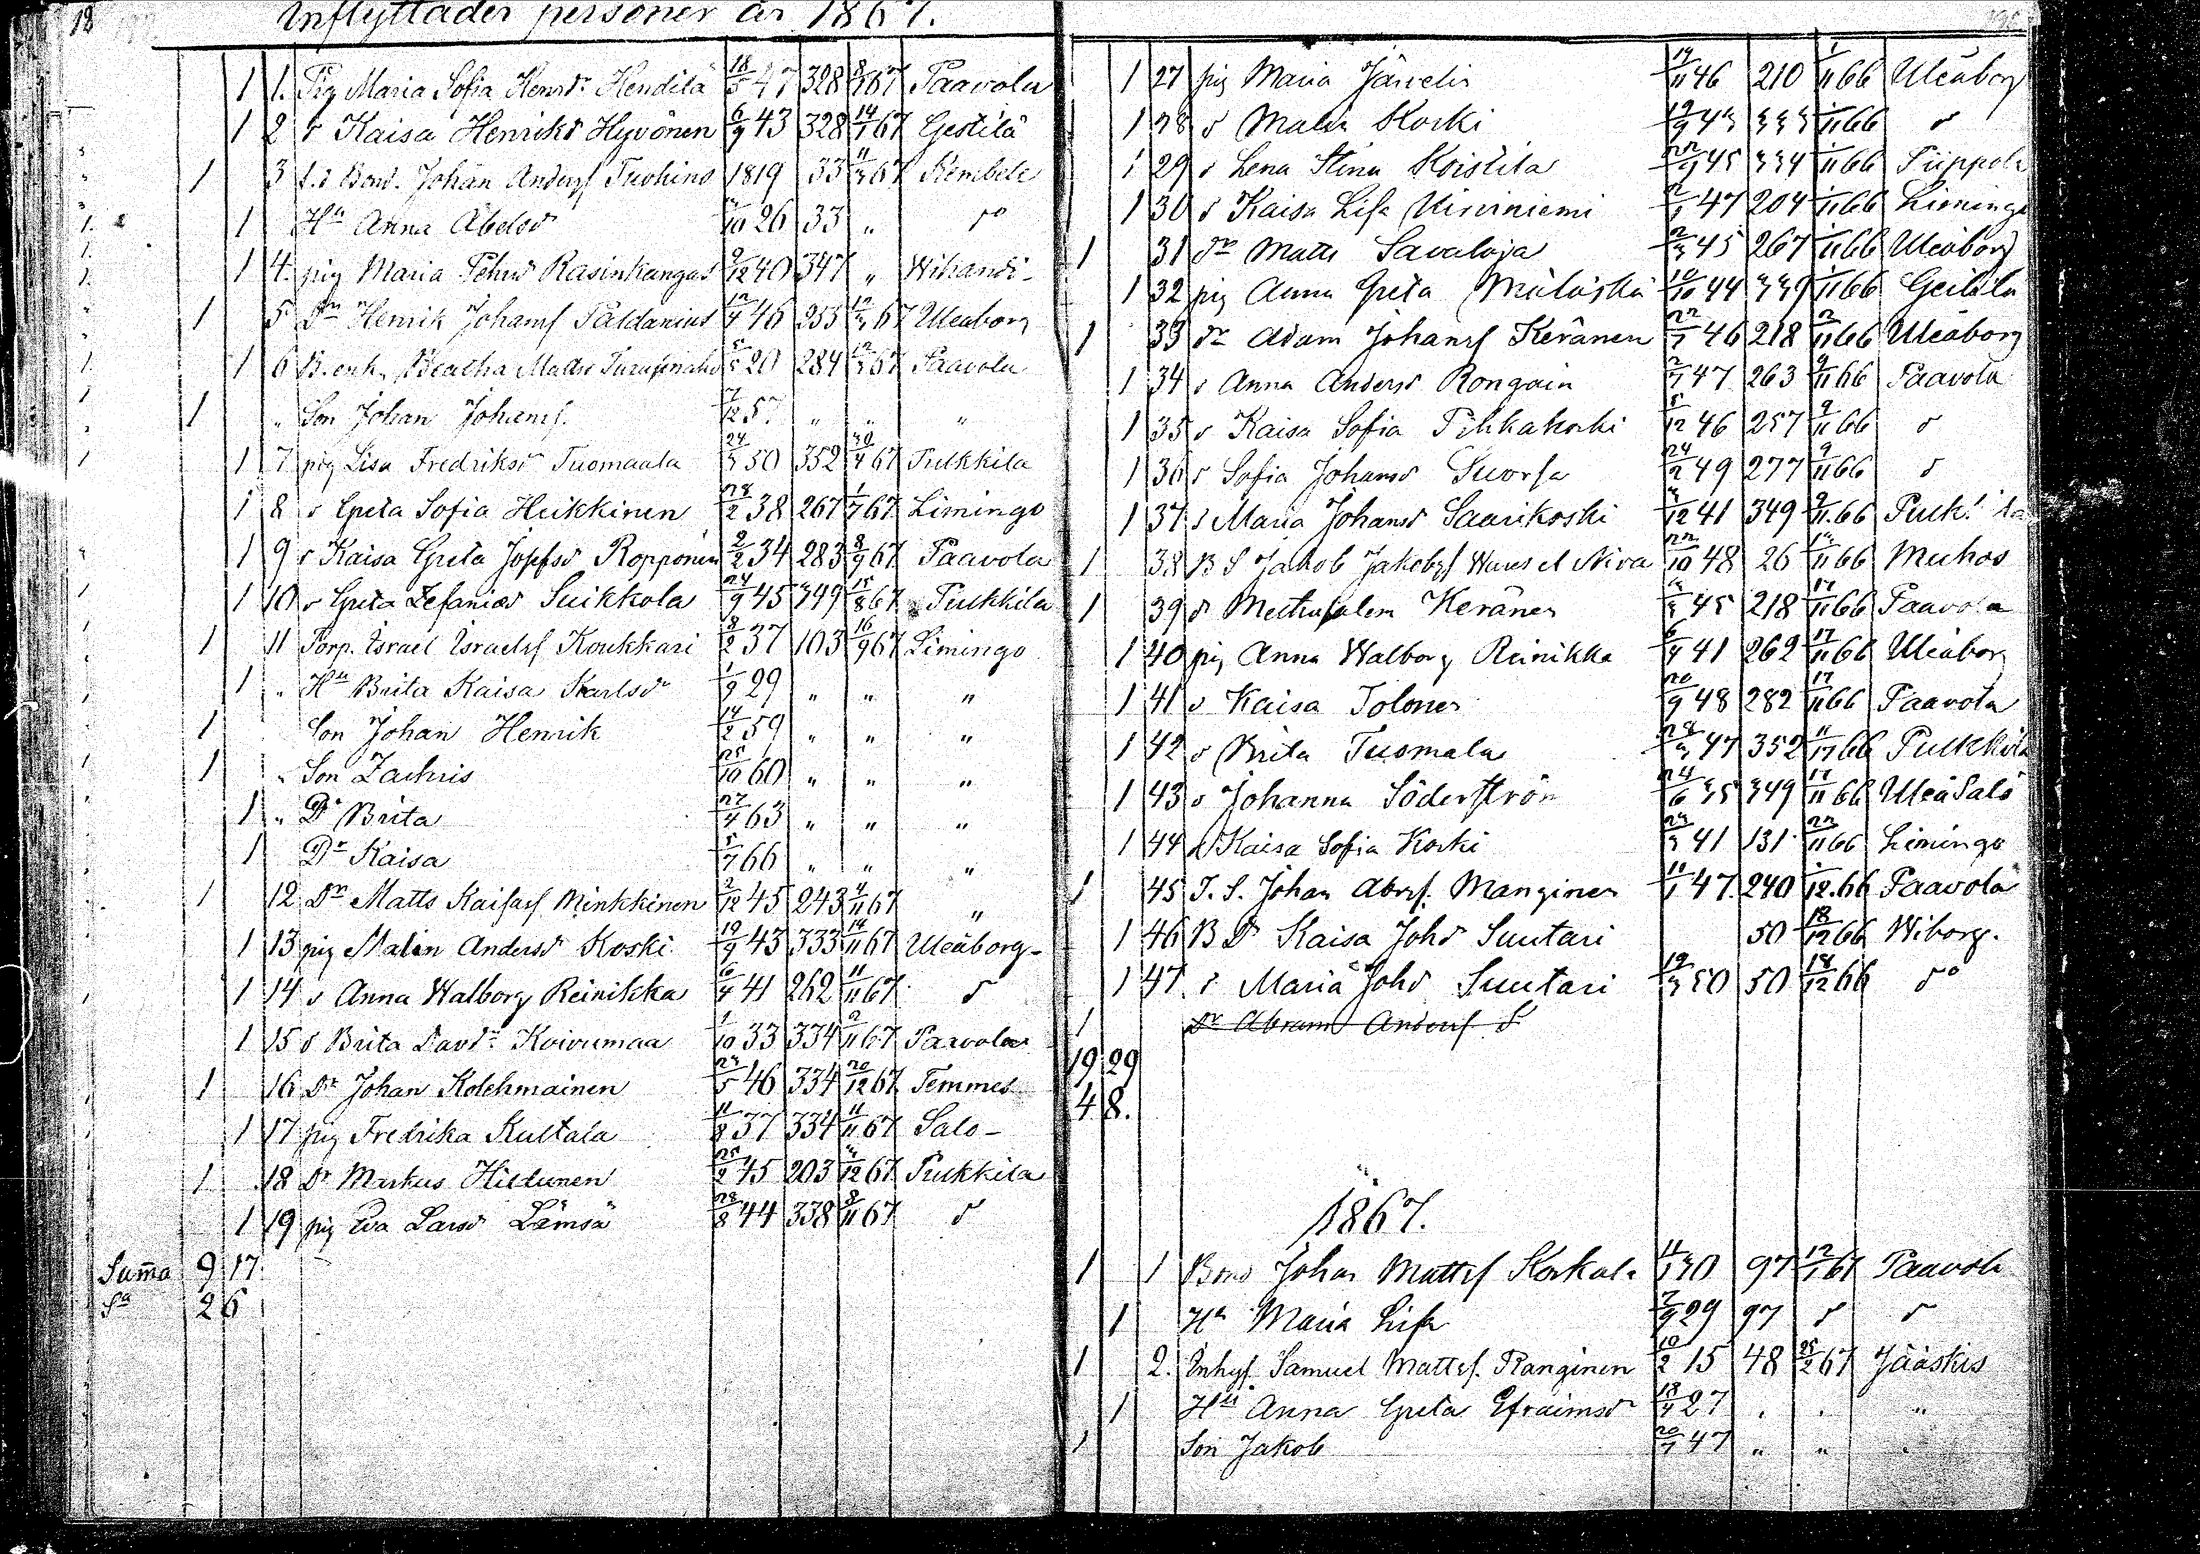 18
Inflyttader personer år 1867.
1 1. Pig Maria Sofia Henrsdr Hendilä 18/5 47 328 8/1 67 Paavola
1 2 d Kaisa Henriksd Hyvönen 6/9 43 328 14/1 67 Gestilä
1 3 f.d Bond. Johan Andersf Tuohino 1819 33 11/3 67 Kembele
1 Hu Anna Abelsd 3/10 26 33 " do
1 4. pig Maria Pehrsd Rasinkangas 9/12 40 347 " Wihandi-
1 5 Dr Henrik Johansf Paldanius 12/4 46 255 12/3 67 Uleaborg
1 6 B. enk. Beatha Mattsd 20 284 12/3 67 Paavola
1 " Son Johan Johansf. 7/12 57. " " "
1 7 pig Lisa Fredriksdr Tuomaala 24/3 50 352 30/4 67 Pulkkila
1 8 d Greta Sofia Heikkinen 28/2 38 267 1/7 67 Limingo
1 9 d Kaisa Greta Josefsd Ropponen 2/2 34 283 8/9 67 Paavola
1 10 d Greta Zefaniasd Suikkola 24/9 45 349 15/8 67 Pulkkila
1 11 Torp. Israel Israelsf Koukkari 8/2 37 103 16/9 67 Limingo
1 " Hu Brita Kaisa Karlsdr 1/9 29 " " "
1 Son Johan Henrik 14/2 59 " " "
1 " Son Zachris 25/10 60 " " "
1 " Dr Brita 27/4 63 " " "
1 Dr Kaisa 5/7 66 " " "
1 12 Dr Matts Kaisasf Minkkinen 2/12 45 243 4/11 67 "
1 13 pig Malin Andersd Koski 19/9 43 333 14/11 67 Uleåborg-
1 14 d Anna Walborg Reinikka 6/4 41 262 11/11 67 d
1 15 d Brita Davdr Koivumaa 1/10 33 334 2/11 67 Paavola
1 16 Dr Johan Kolehmainen 23/5 46 334 20/12 67 Temmes
1 17 pig Fredrika Kultala 11/8 37 334 11/11 67 Salo-
1 18 Dr Markus Hildunen 25/2 45 203 3/12 67 Pulkkila
1 19 pig Eva Larsd Lämsä 28/8 44 338 8/11 67 d
Suma 9 17
Sa 26
1 27 pig Maria Järvelin 19/11 46 210 1/11 66 Uleåborg
1 28 d Malin Koski 19/9 43 333 1/11 66 d
1 29 d Lena Stina Koistila 45 334 1/11 66 Piippola
1 30 d Kaisa Lisa Kiviniemi 47 204 1/11 66 Limingo
1 31 Dr Matts Savaloja 2/3 45 267 1/11 66 Uleåborg
1 32 pig Anna Greta 10/10 44 339 1/11 66
1 33 dr Adam Johansf Keränen 22/7 46 218 2/11 66 Uleåborg
1 34 d Anna Andersd Rongain 2/7 47 263 9/11 66 Paavola
1 35 d Kaisa Sofia Pihkakoski 5/12 46 257 9/11 66 d
1 36 d Sofia Johansd Suorsa 24/2 49 277 9/11 66 d
1 37 d Maria Johansd Saarikoski 3/12 41 349 9/11.66
1 38 B S Jakob Jakobsf Niva 22/10 48 26 66 Muhos
1 39 d Methusalem Keränen 45 218 17/11 66 Paavola
1 40 pig Anna Walborg Reinikka 6/4 41 262 17/11 66 Uleåborg
1 41 d Kaisa Tolonen 20/9 48 282 17/11 66 Paavola
1 42 d Brita Tuomala 28/3 47 352 11/17 66 Pulkkila
1 43 d Johanna Söderström 24/6 35 349 17/11 66 UleåSalo
1 44 d Kaisa Sofia Koski 23/3 41 131 23/11 66 Limingo
1 45 T. S. Johan Abrsf. Manginen 11/1 47. 240 1/12.66 Paavola
1 46 B Dr Kaisa Johsd Suutari 50 18/12 66 Wiborg.
1 47. d Maria Johsd Suutari 19/3 50 50 18/12 66 do
1 Dr Abram Andersf S
19 29
48.
1867.
1 1 Bond Johan Mattsf Korkala 11/1 30 97 12/1 67 Paavola
1 Hu Maria Lisa 7/9 29 97 d d
1 2. Inhysf Samuel Mattsf. Ranginen 10/2 15 48 25/2 67 Jääskis
1 Hu Anna Greta Efraimsdr 18/4 27 " " "
1 Son Jakob 20/7 47 " " "